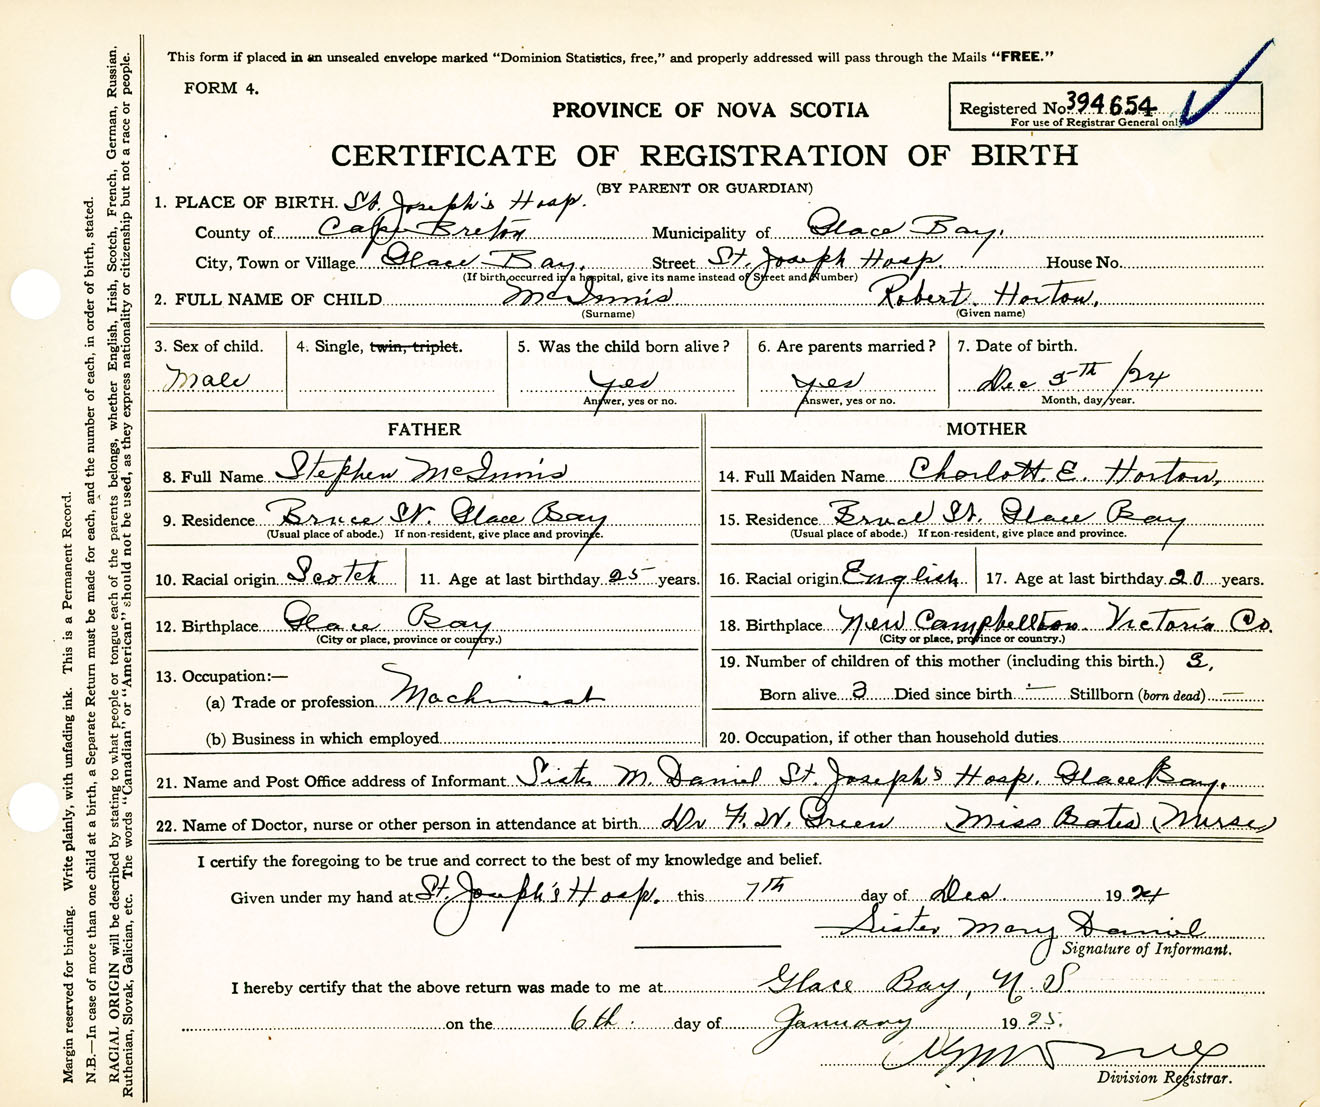 This form if placed in an unsealed envelope marked "Dominion Statistics, free," and properly addressed will pass through the Mails "FREE."
FORM 4.
PROVINCE OF NOVA SCOTIA
Registered No. 394654
For use of Registrar General only
CERTIFICATE OF REGISTRATION OF BIRTH
(BY PARENT OR GUARDIAN)
1. PLACE OF BIRTH. St. Joseph's Hosp.
County of Cape Breton Municipality of Glace Bay.
City, Town or Village Glace Bay. Street St. Joseph Hosp. House No.
(If birth occurred in a hospital, give its name instead of Street and Number)
2. FULL NAME OF CHILD McInnis Robert Horton.
(Surname) (Given name)
3. Sex of child. 4. Single, twin, triplet. 5. Was the child born alive? 6. Are parents married? 7. Date of birth.
Male yes yes Dec 5th /24
Answer, yes or no. Answer, yes or no. Month, day, year.
FATHER MOTHER
8. Full Name Stephen McInnis 14. Full Maiden Name Charlott. E. Horton,
9. Residence Bruce St. Glace Bay 15. Residence Bruce St. Glace Bay
(Usual place of abode.) If non-resident, give place and province. (Usual place of abode.) If non-resident, give place and province.
10. Racial origin Scotch 11. Age at last birthday 25 years. 16. Racial origin English 17. Age at last birthday 20 years.
12. Birthplace Glace Bay 18. Birthplace New Campbellton. Victoria Co.
(City or place, province or country.) (City or place, province or country.)
13. Occupation:— 19. Number of children of this mother (including this birth.) 3,
(a) Trade or profession Machinist Born alive 3 Died since birth — Stillborn (born dead) —
(b) Business in which employed 20. Occupation, if other than household duties
21. Name and Post Office address of Informant Sister M. Daniel St. Joseph's Hosp. Glace Bay.
22. Name of Doctor, nurse or other person in attendance at birth Dr F. W. Green Miss Bates Nurse
I certify the foregoing to be true and correct to the best of my knowledge and belief.
Given under my hand at St. Joseph's Hosp. this 7th day of Dec. 1924
Sister Mary Daniel
Signature of Informant.
I hereby certify that the above return was made to me at Glace Bay, N. S.
on the 6th. day of January 1925.
Division Registrar.
Margin reserved for binding. Write plainly, with unfading ink. This is a Permanent Record.
N.B.—In case of more than one child at a birth, a Separate Return must be made for each, and the number of each, in order of birth, stated.
RACIAL ORIGIN will be described by stating to what people or tongue each of the parents belongs, whether English, Irish, Scotch, French, German, Russian,
Ruthenian, Slovak, Galician, etc. The words "Canadian" or "American" should not be used, as they express nationality or citizenship but not a race or people.